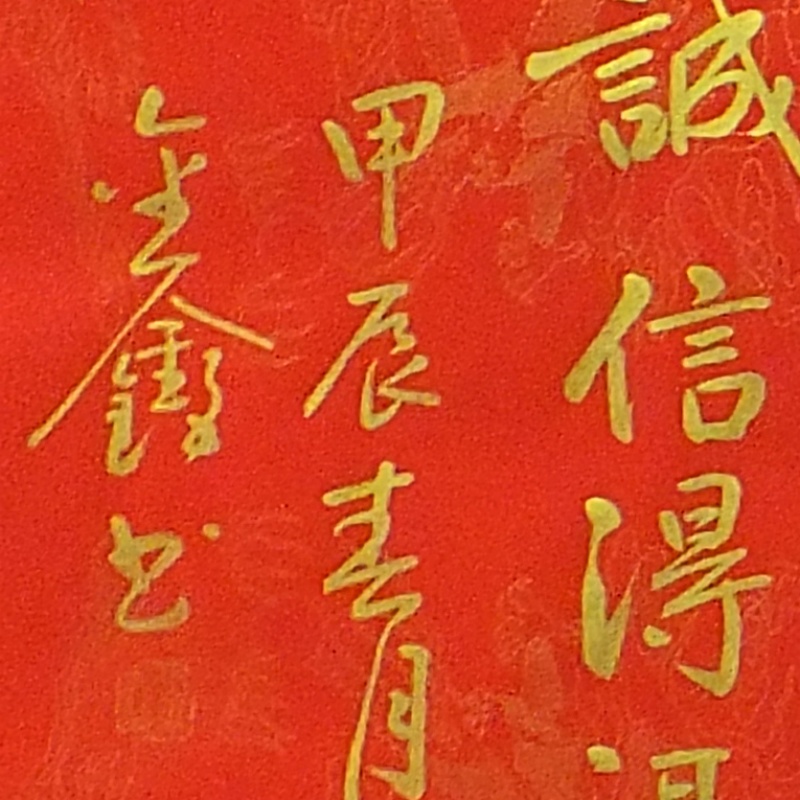 誠信得
甲辰春月
金鑫书